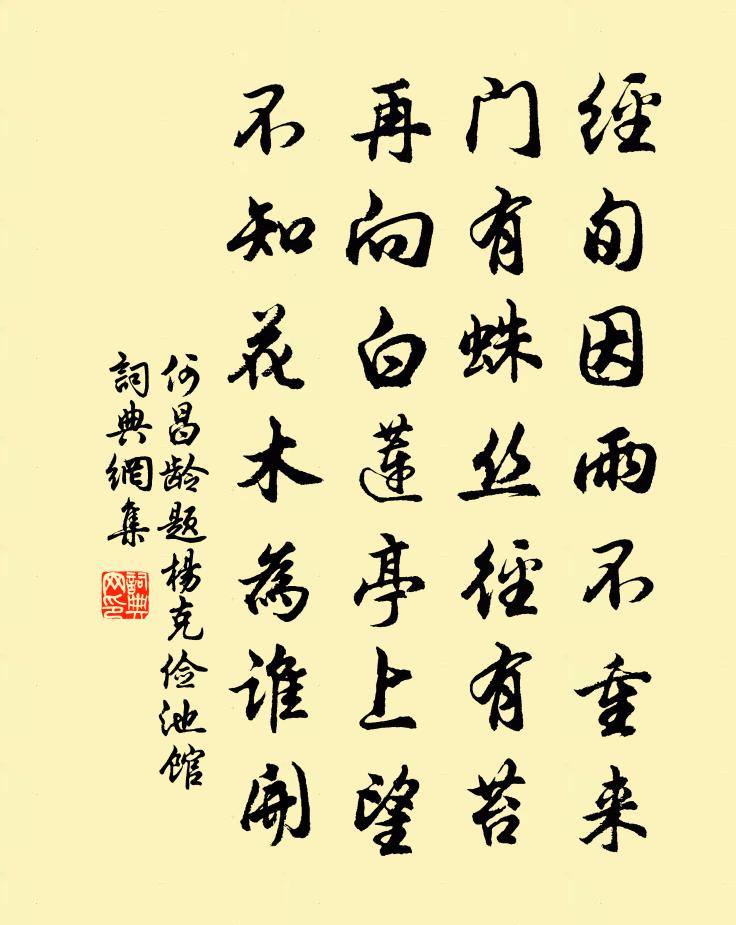 經旬因雨不重来
門有蛛丝徑有苔
再向白蓮亭上望
不知花木為谁開
何昌龄题楊克俭池馆
詞典網集
詞典網印